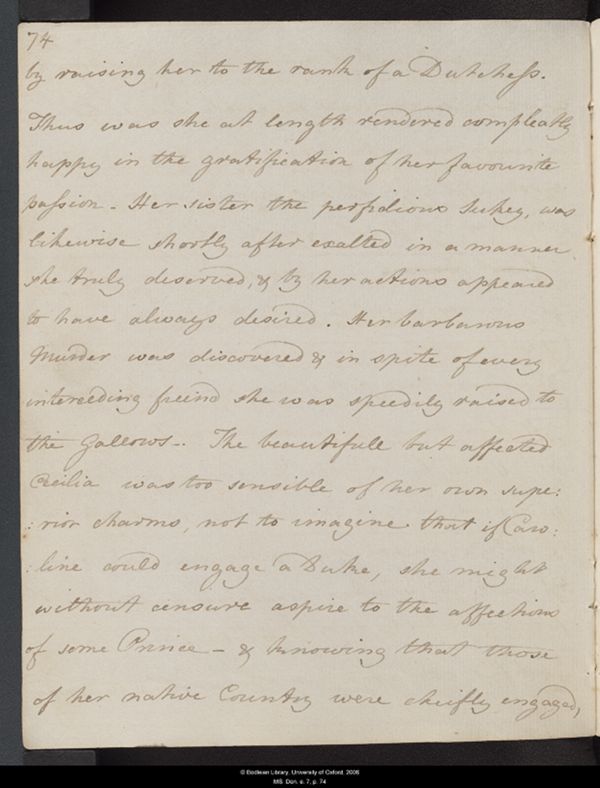 74
by raising her to the rank of a Dutchess.
Thus was she at length rendered compleatly
happy in the gratification of her favourite
passion - Her sister the perfidious Sukey, was
likewise shortly after exalted in a manner
she truly deserved, & by her actions appeared
to have always desired. Her barbarous
Murder was discovered & in spite of every
interceding freind she was speedily raised to
the Gallows -. The beautifull but affected
Cecilia was too sensible of her own supe:
:rior charms, not to imagine that if Caro:
:line could engage a Duke, she might
without censure aspire to the affections
of some Prince - & knowing that those
of her native Country were cheifly engaged,
© Bodleian Library, University of Oxford, 2006
MS. Don. e. 7, p. 74